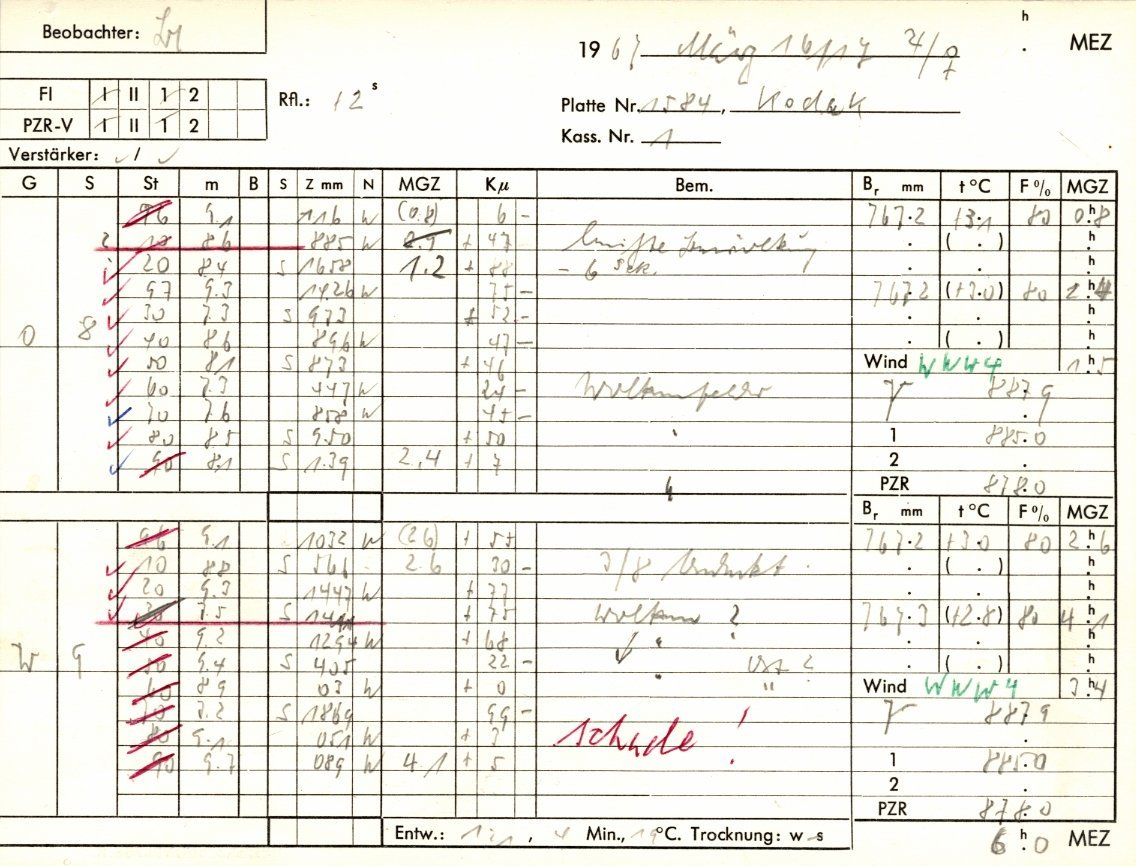 Beobachter:
19 67 März 16/17 ♃/♀ h . MEZ
FI I II 1 2 Rfl.: 12 s
Platte Nr. 1584, Kodak
PZR-V I II 1 2
Kass. Nr. 1
Verstärker: ✓ / ✓
G S St m B S Z mm N MGZ Kμ Bem. Br mm t °C F % MGZ
96 9.1 116 W (0.8) 6 – 767.2 +3.1 80 0.h8
2 10 8.6 885 W + 47 . ( . ) .h
20 8.4 S 1658 1.2 + 88 – 6 Sek. .
97 9.3 1426 W 75 – 767.2 (+3.0) 80 2.4
30 7.3 S 973 + 52 –
0 8 40 8.6 896 W 47 – . ( . ) .h
50 8.1 S 873 + 46 Wind WWW4 1.h5
60 7.3 447 W 24 – Wolkenfelder 887.9
70 7.6 858 W 45 –
80 8.5 S 950 + 50 1 885.0
90 8.1 S 139 2,4 + 7 2 .
PZR 878.0
Br mm t °C F % MGZ
96 9.1 1032 W (2.6) + 55 767.2 +3.0 80 2.h6
10 8.8 S 566 2.6 30 – 3/8 bedeckt . ( . ) .h
20 9.3 1447 W + 77
7.5 S + 75 Wolken ? 767.3 (+2.8) 80 4.1
40 9.2 1294 W + 68 "
W 9 50 9.4 S 405 22 – " ? . ( . ) .h
60 8.9 03 W + 0 " Wind WWW4 3.h4
70 7.2 S 1869 99 – 887.9
80 9.1 051 W + 3 schade !
90 9.7 089 W 4.1 + 5 1 885.0
2 .
PZR 878.0
Entw.: 1:1, 4 Min., 19 °C. Trocknung: w s 6 h.0 MEZ